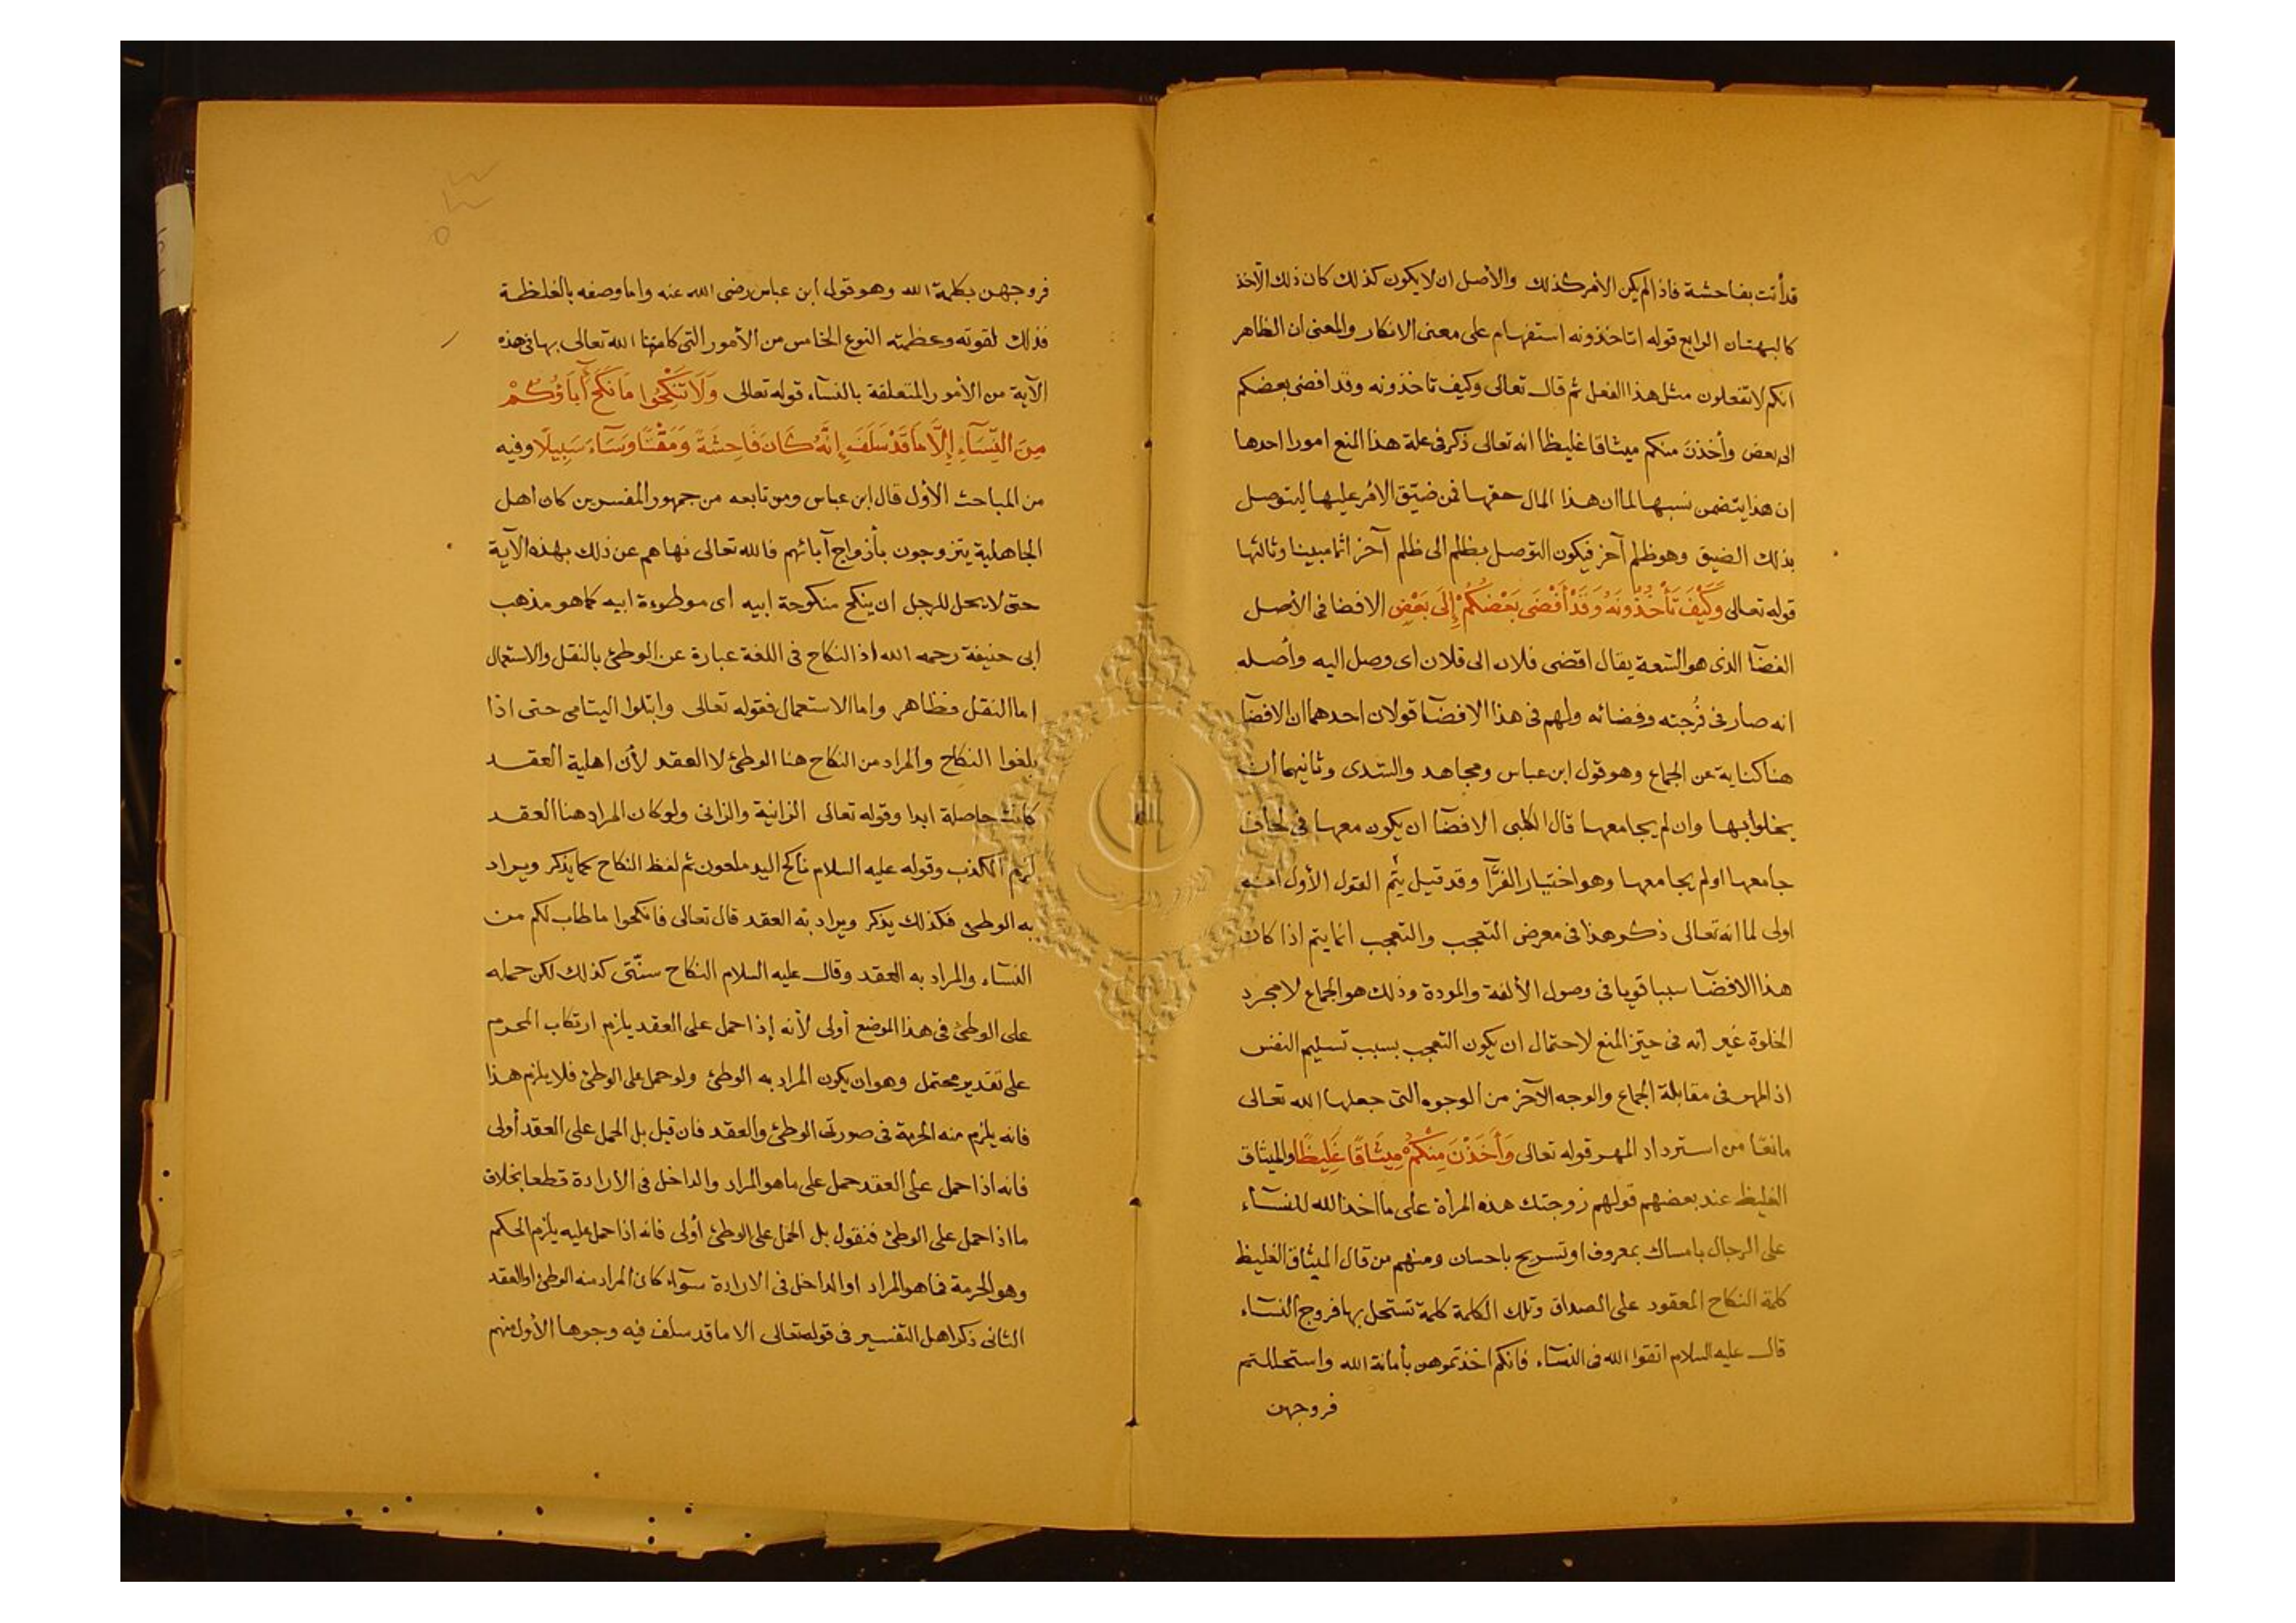 قد أتت بفاحشة فاذا لم يكن الأمر كذلك والأصل ان لا يكون كذلك كان ذلك الآخذ
كالبهتان الرابع قوله اتاخذونه استفهام على معنى الانكار والمعنى ان الظاهر
انكم لا تفعلون مثل هذا الفعل ثم قال تعالى وكيف تاخذونه وقد افضى بعضكم
الى بعض وأخذن منكم ميثاقا غليظا انه تعالى ذكر فى علة هذا المنع امورا احدها
ان هذا يتضمن نسبها لما ان هذا المال حقها فمن ضيّق الامر عليها ليتوصل
بذلك الضيق وهو ظلم آخر فيكون التوصل بظلم الى ظلم آخر اثما مبينا وثالثها
قوله تعالى وَكَيْفَ تَأْخُذُونَهُ وَقَدْ أَفْضَى بَعْضُكُمْ إِلَى بَعْضٍ الافضا فى الأصل
الفضآ الذى هو السّعة يقال افضى فلان الى فلان اى وصل اليه وأصله
انه صار فى فُرجته وفضائه ولهم فى هذا الافضآ قولان احدهما ان الافضآ
هنا كناية عن الجماع وهو قول ابن عباس ومجاهد والسّدى وثانيهما أن
يخلوا بها وان لم يجامعها قال الكلبى الافضآ ان يكون معها فى لحاف
جامعها اولم يجامعها وهو اختيار الفرَّآ وقد قيل ثم القول الأول
اولى لما انه تعالى ذكر هذا فى معرض التعجب والتعجب انما يتم اذا كان
هذا الافضآ سببا قويا فى وصول الألفة والمودة وذلك هو الجماع لا مجرد
الخلوة غير انه فى حيّز المنع لاحتمال ان يكون التعجب بسبب تسليم النفس
اذ المهر فى مقابلة الجماع والوجه الآخر من الوجوه التى جعلها الله تعالى
مانعًا من استرداد المهر قوله تعالى وَأَخَذْنَ مِنْكُمْ مِيثَاقًا غَلِيظًا والميثاق
الغليظ عند بعضهم قولهم زوجتك هذه المرأة على ما اخذ الله للنسآء
على الرجال بامساك بمعروف او تسريح باحسان ومنهم من قال الميثاق الغليظ
كلمة النكاح المعقود على الصداق وتلك الكلمة كلمة تستحل بها فروج النسآء
قال عليه السلام اتقوا الله فى النسآء فانكم اخذتموهن بأمانة الله واستحللتم
فروجهن
فروجهن بكلمة الله وهو قول ابن عباس رضى الله عنه واما وصفه بالغلظة
فذلك لقوته وعظمته النوع الخامس من الأمور التى الله تعالى بها فى هذه
الآية من الأمور المتعلقة بالنسآء قوله تعالى وَلَا تَنْكِحُوا مَا نَكَحَ آبَاؤُكُمْ
مِنَ النِّسَآءِ إِلَّا مَا قَدْ سَلَفَ إِنَّهُ كَانَ فَاحِشَةً وَمَقْتًا وَسَآءَ سَبِيلًا وفيه
من المباحث الأول قال ابن عباس ومن تابعه من جمهور المفسرين كان اهل
الجاهلية يتزوجون بأزواج آبائهم فالله تعالى نهاهم عن ذلك بهذه الآية
حتى لا يحل للرجل ان ينكح منكوحة ابيه اى موطوءة ابيه كما هو مذهب
أبى حنيفة رحمه الله اذ النكاح فى اللغة عبارة عن الوطئ بالنقل والاستعمال
اما النقل فظاهر واما الاستعمال فقوله تعالى وابتلوا اليتامى حتى اذا
بلغوا النكاح والمراد من النكاح هنا الوطئ لا العقد لأن اهلية العقد
كانت حاصلة ابدا وقوله تعالى الزانية والزانى ولو كان المراد هنا العقد
لزم الكذب وقوله عليه السلام ناكح اليد ملعون ثم لفظ النكاح كما يذكر ويراد
به الوطئ فكذلك يذكر ويراد به العقد قال تعالى فانكحوا ما طاب لكم من
النسآء والمراد به العقد وقال عليه السلام النكاح سنّتى كذلك لكن حمله
على الوطئ فى هذا الموضع أولى لأنه إذا حمل على العقد يلزم ارتكاب المحرم
على تقدير محتمل وهو ان يكون المراد به الوطئ ولو حمل على الوطئ فلا يلزم هذا
فانه يلزم منه الحرمة فى صورتى الوطئ والعقد فان قيل بل الحمل على العقد أولى
فانه اذا حمل على العقد حمل على ما هو المراد والداخل فى الأرادة قطعا بخلاف
ما اذا حمل على الوطئ فنقول بل الحمل على الوطئ أولى فانه اذا حمل عليه يلزم الحكم
وهو الحرمة فما هو المراد او الداخل فى الارادة سوآء كان المراد منه الوطئ او العقد
الثانى ذكر اهل التفسير فى قوله تعالى الا ما قد سلف فيه وجوها الأول منهم